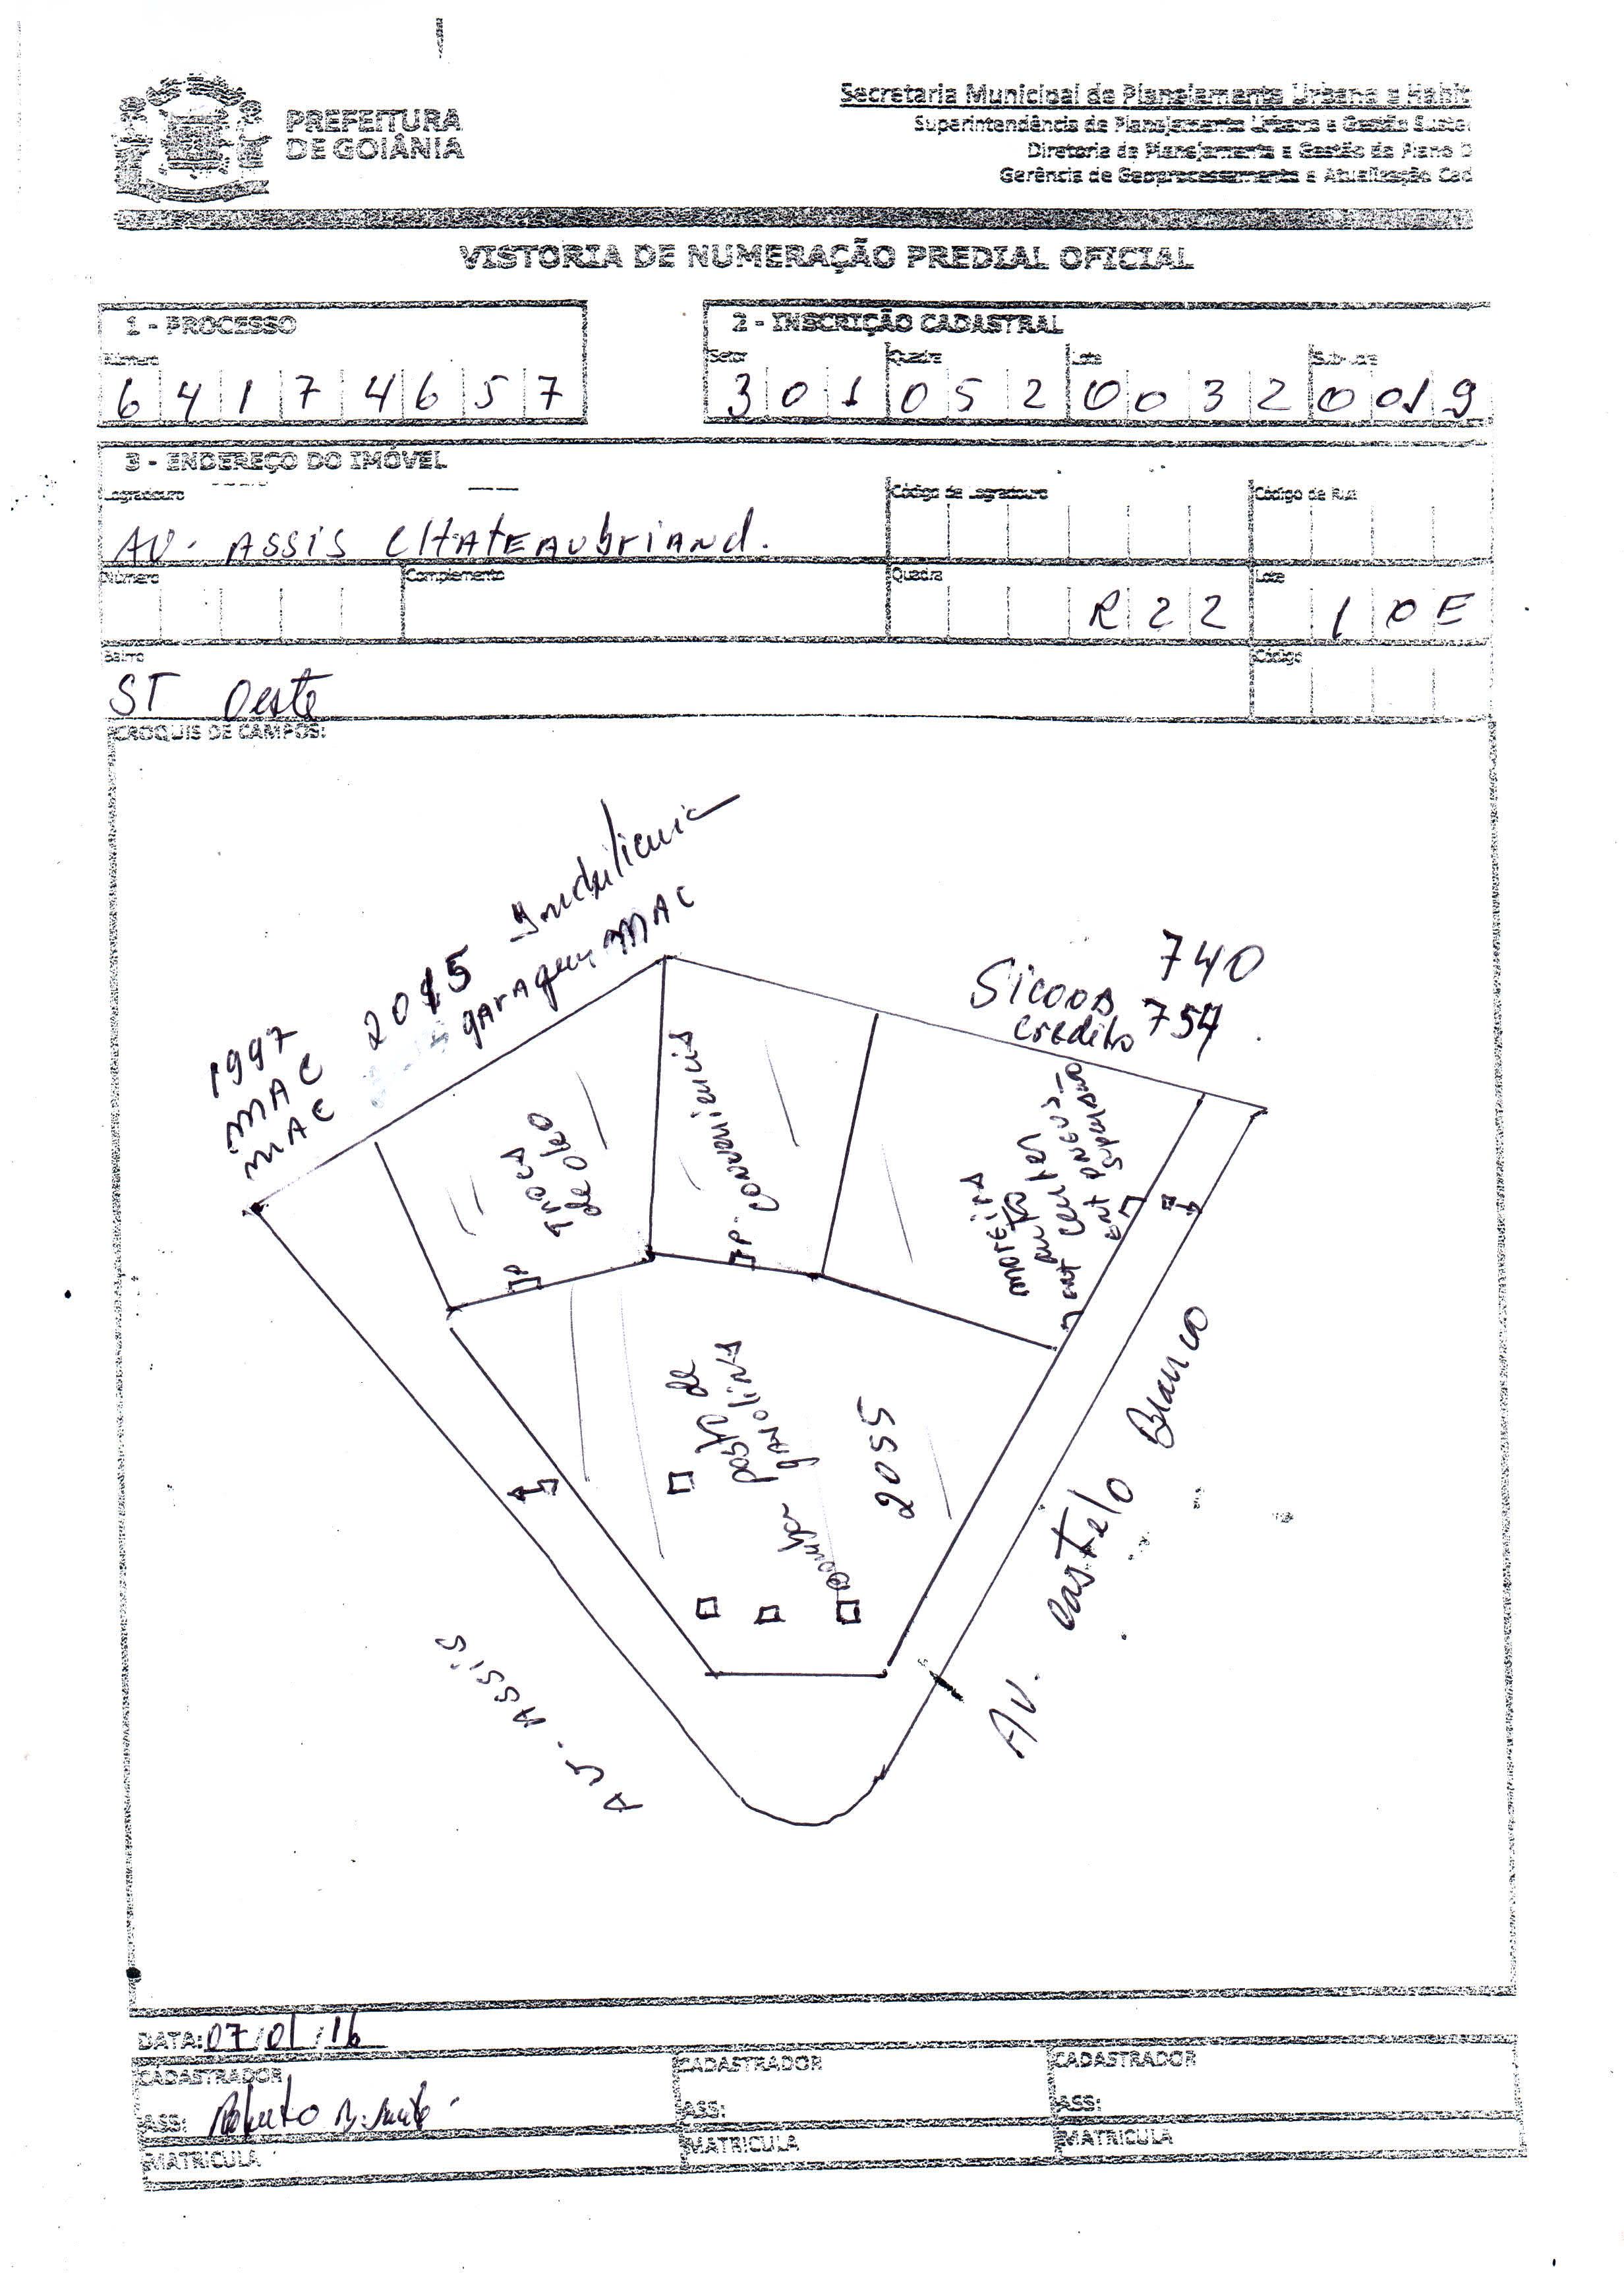 PREFEITURA
DE GOIÂNIA
Secretaria Municipal de Planejamento Urbano e Habit
Superintendência de Planejamento Urbano e Gestão Suste
Diretoria de Planejamento e Gestão do Plano D
Gerência de Geoprocessamento e Atualização Cad
VISTORIA DE NUMERAÇÃO PREDIAL OFICIAL
1 - PROCESSO
Número
6 4 1 7 4 6 5 7
2 - INSCRIÇÃO CADASTRAL
Setor Quadra Lote Sub-Lote
3 0 1 0 5 2 0 0 3 2 0 0 1 9
3 - ENDEREÇO DO IMÓVEL
Logradouro Código de Logradouro Código de Rua
AV. ASSIS CHATEAUbriANd.
Número Complemento Quadra Lote
R 2 2 1 0 E
Bairro Código
ST Oeste
CROQUIS DE CAMPOS:
1997
MAC
MAC
2015
garagem MAC
740
Sicoob
credito 754
de oleo
P
Conveniencia
P.
moreira
posto de
gasolina
bomba
2055
AV. ASSIS
AV. Castelo Branco
DATA: 07/01/16
CADASTRADOR CADASTRADOR CADASTRADOR
ASS: Roberto ASS: ASS:
MATRICULA MATRICULA MATRICULA